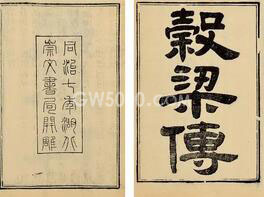 穀梁傳
同治七年湖北
崇文書局開雕
GW5000.com